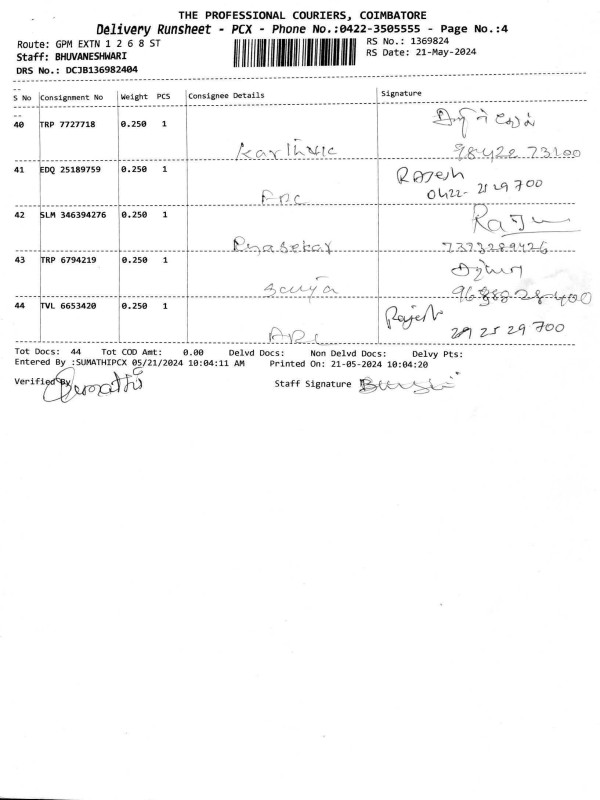 THE PROFESSIONAL COURIERS, COIMBATORE
Delivery Runsheet - PCX - Phone No.:0422-3505555 - Page No.:4
Route: GPM EXTN 1 2 6 8 ST
RS No.: 1369824
Staff: BHUVANESHWARI
RS Date: 21-May-2024
DRS No.: DCJB136982404
S No Consignment No Weight PCS Consignee Details Signature
40 TRP 7727718 0.250 1
Karthik 98422 73100
41 EDQ 25189759 0.250 1 Rajesh
0422- 2529700
42 SLM 346394276 0.250 1 Raju
7373289426
43 TRP 6794219 0.250 1
96888 28400
44 TVL 6653420 0.250 1 Rajesh
2529700
Tot Docs: 44 Tot COD Amt: 0.00 Delvd Docs: Non Delvd Docs: Delvy Pts:
Entered By :SUMATHIPCX 05/21/2024 10:04:11 AM Printed On: 21-05-2024 10:04:20
Verified By Sumathi Staff Signature